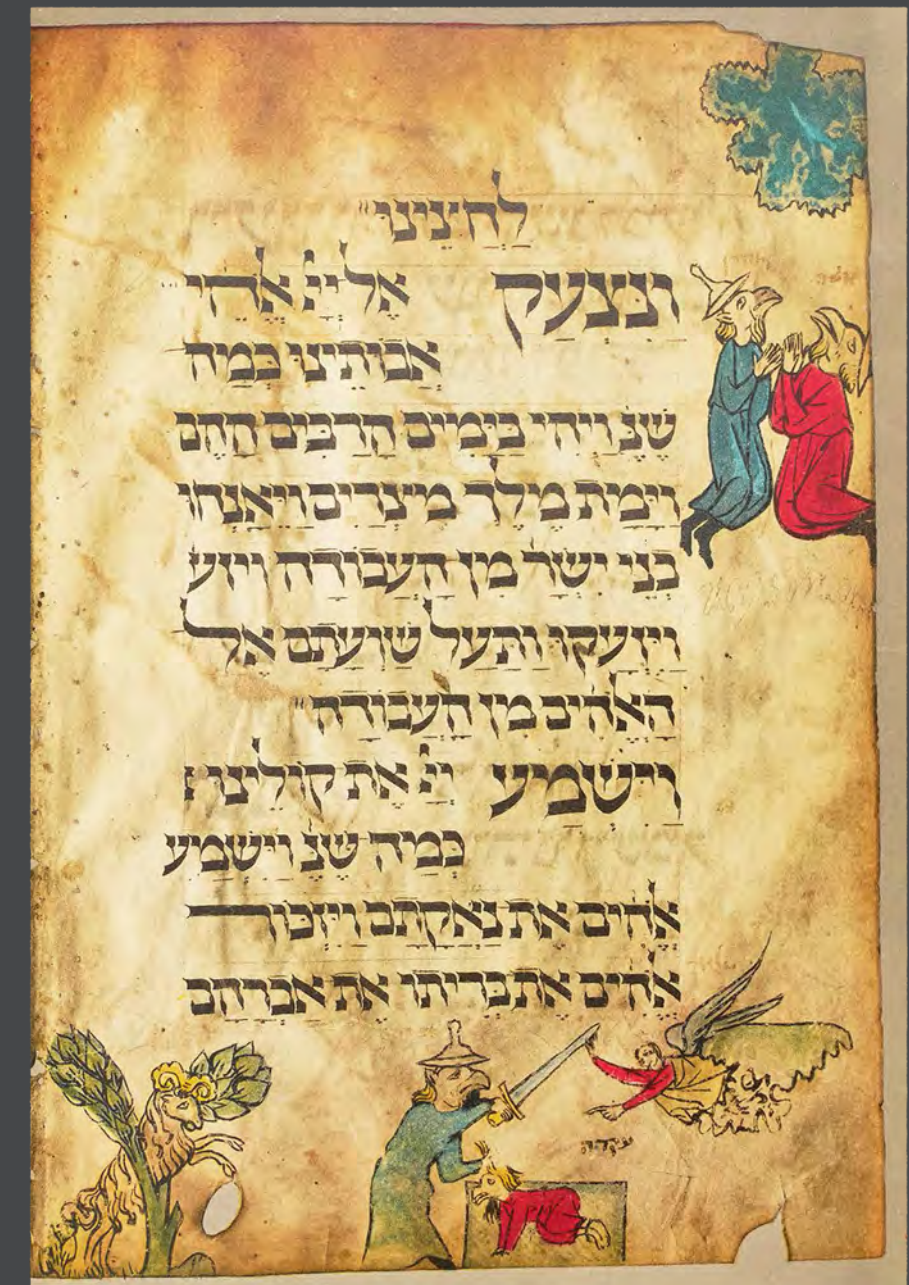 לַחֲצֵינוּ״
וַנִּצְעַק אֶל יְיָ֗ אֱלֹהֵי
אֲבוֹתֵינוּ כְּמָה
שֶׁנֶּ֗ וַיְהִי בַיָּמִים הָרַבִּים הָהֵם
וַיָּמָת מֶלֶךְ מִצְרַיִם וַיֵּאָנְחוּ
בְנֵי יִשְׂרָ֗ מִן הָעֲבוֹדָה ויזע
וַיִּזְעָקוּ וַתַּעַל שַׁוְעָתָם אֶל
הָאֱלֹהִים מִן הָעֲבוֹדָה״
וַיִּשְׁמַע יְיָ֗ אֶת קוֹלֵינוּ
כְּמָה שֶׁנֶּ֗ וַיִּשְׁמַע
אֱלֹהִים אֶת נַאֲקָתָם וַיִּזְכּוֹר
אֱלֹהִים אֶת בְּרִיתוֹ אֶת אַבְרָהָם